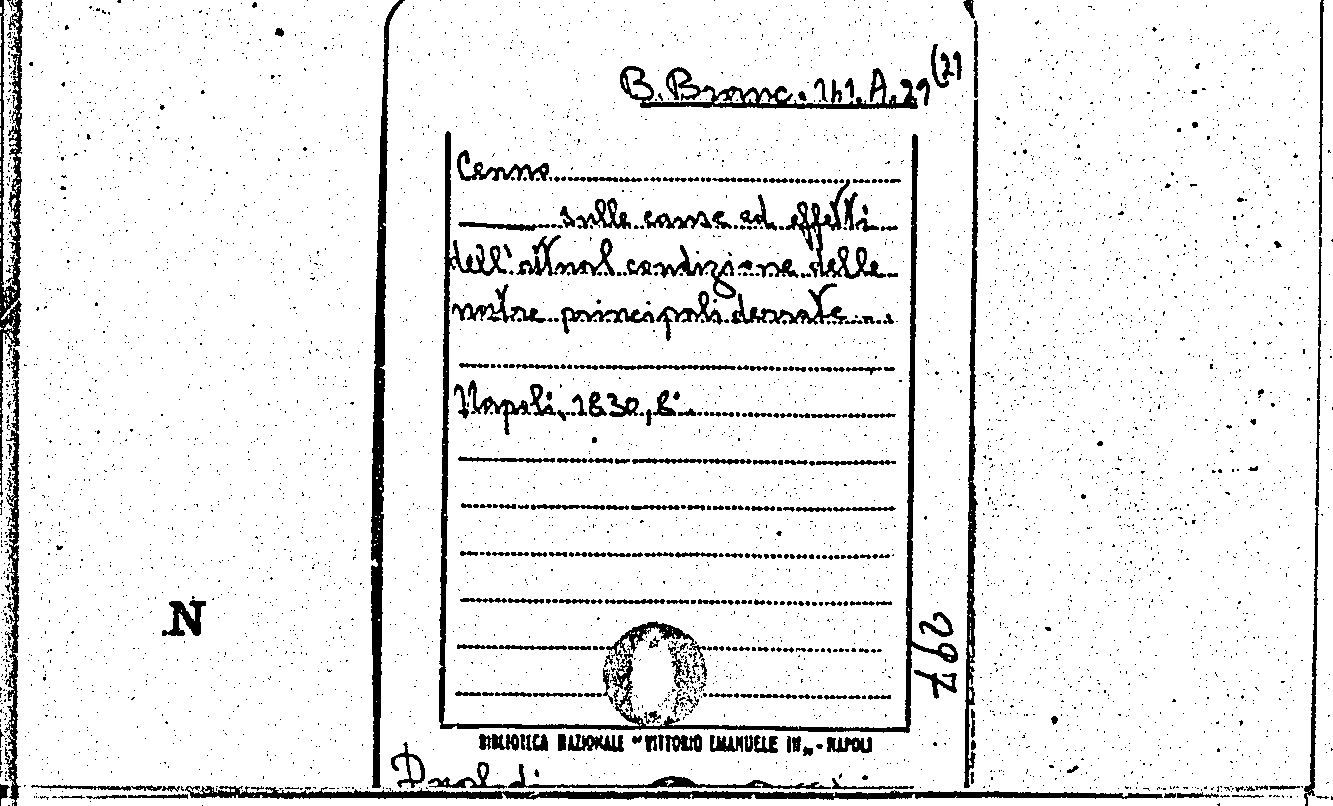 B. Branc. 141. A. 29 (21
Cenno
sulle cause ed effetti
dell'attual condizione delle
nostre principali derrate....
Napoli, 1830, 8°.
297
N
BIBLIOTECA NAZIONALE "VITTORIO EMANUELE III" - NAPOLI